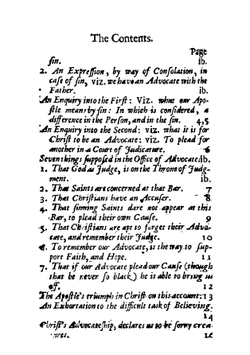 The Contents.
Page
sin. ib.
2. An Expression, by way of Consolation, in
case of sin, viz. we have an Advocate with the
Father. ib.
An Enquiry into the First: Viz. what our Apo-
stle means by sin: In which is considered, a
difference in the Person, and in the sin. 4,5
An Enquiry into the Second: viz. what it is for
Christ to be an Advocate: viz. To plead for
another in a Court of Judicature. 6
Seven things supposed in the Office of Advocate, ib.
1. That God as Judge, is on the Throne of Judg-
ment. ib.
2. That Saints are concerned at that Bar. 7
3. That Christians have an Accuser. 8
4. That sinning Saints dare not appear at this
Bar, to plead their own Cause. 9
5. That Christians are apt to forget their Advo-
cate, and remember their Judge. 10
6. To remember our Advocate, is the way to sup-
port Faith, and Hope. 11
7. That if our Advocate plead our Cause (though
that be never so black,) he is able to bring us
off. 12
The Apostle's triumph in Christ on this account: 13
An Exhortation to the difficult task of Believing.
14
Christ's Advocateship, declares us to be sorry crea-
tures. 16